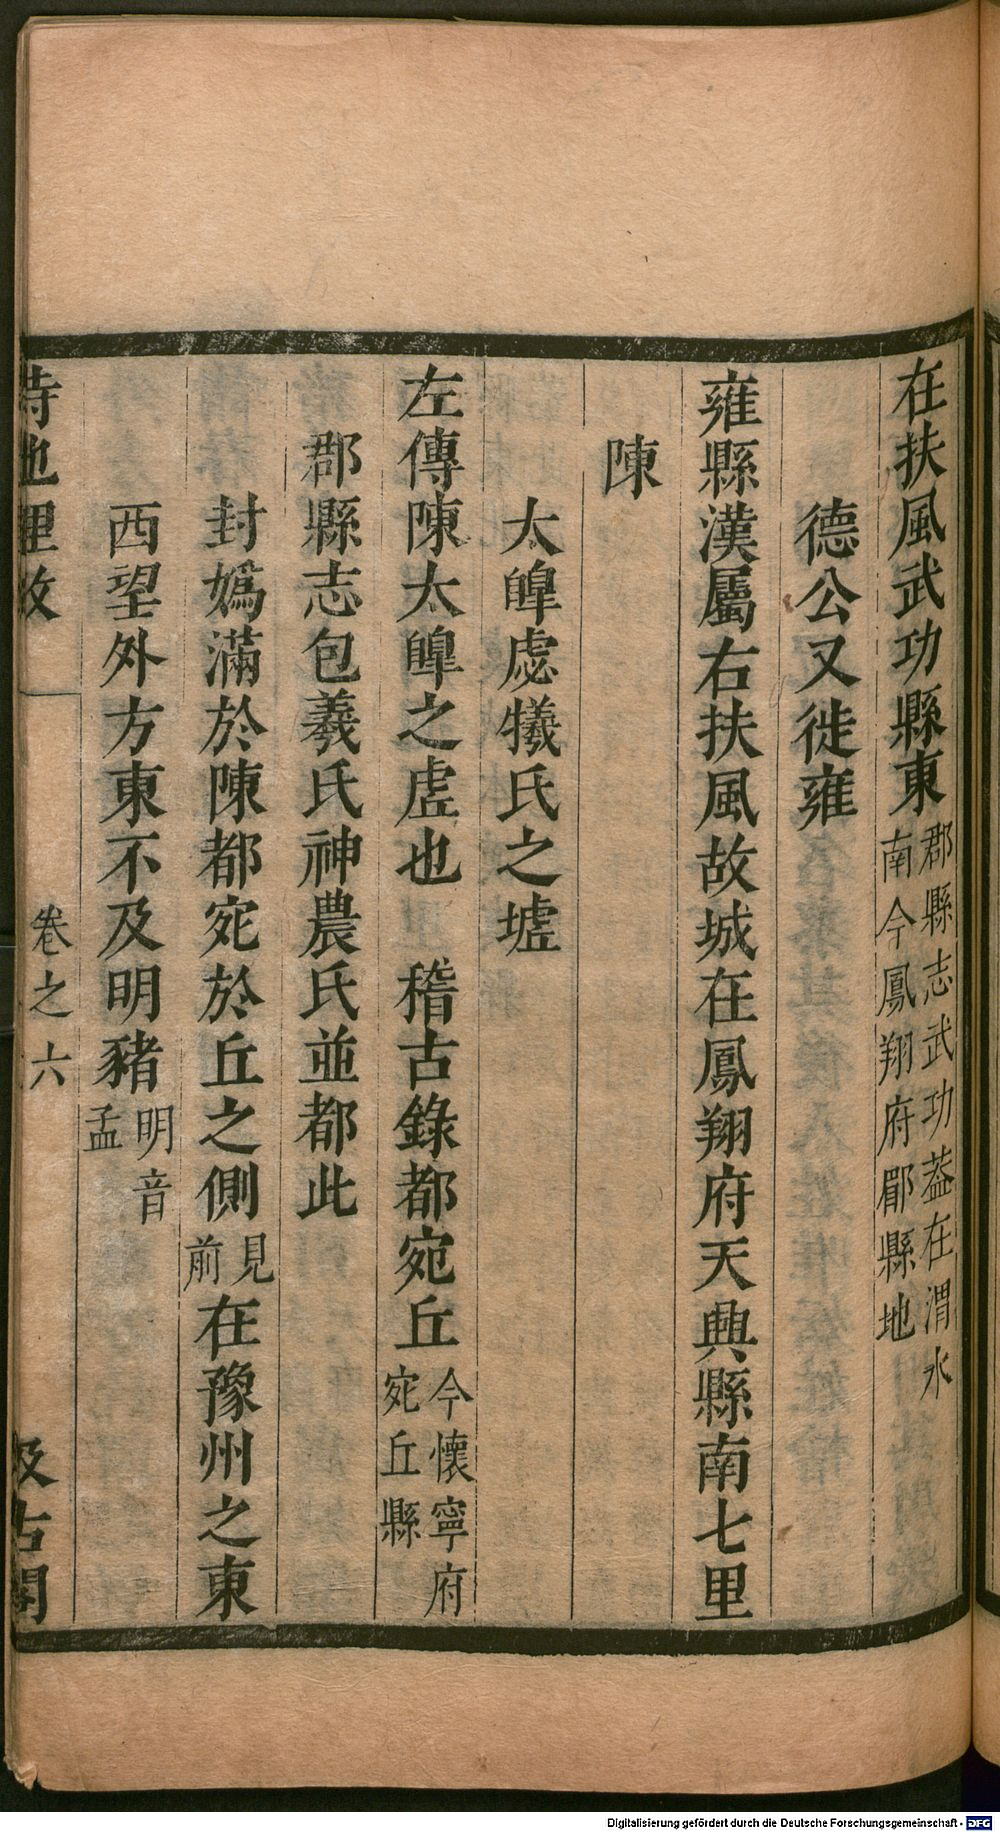 在扶風武功縣東郡縣志武功葢在渭水南今鳳翔府郿縣地
德公又徙雍
雍縣漢屬右扶風故城在鳳翔府天興縣南七里
陳
太皥虙犧氏之墟
左傳陳太皥之虛也　稽古錄都宛丘今懷寧府宛丘縣
郡縣志包羲氏神農氏並都此
封嬀滿於陳都宛於丘之側見前在豫州之東
西望外方東不及明豬明音孟
詩地理攷　卷之六　汲古閣
Digitalisierung gefördert durch die Deutsche Forschungsgemeinschaft - DFG